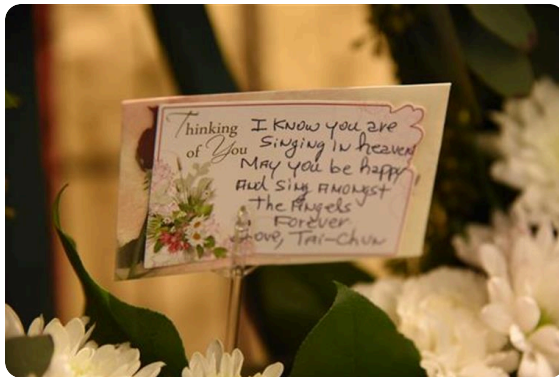 Thinking
of You
I Know you are
Singing in heaven
May you be happy
And Sing Amongst
The Angels
Forever
Love, Tai-Chun